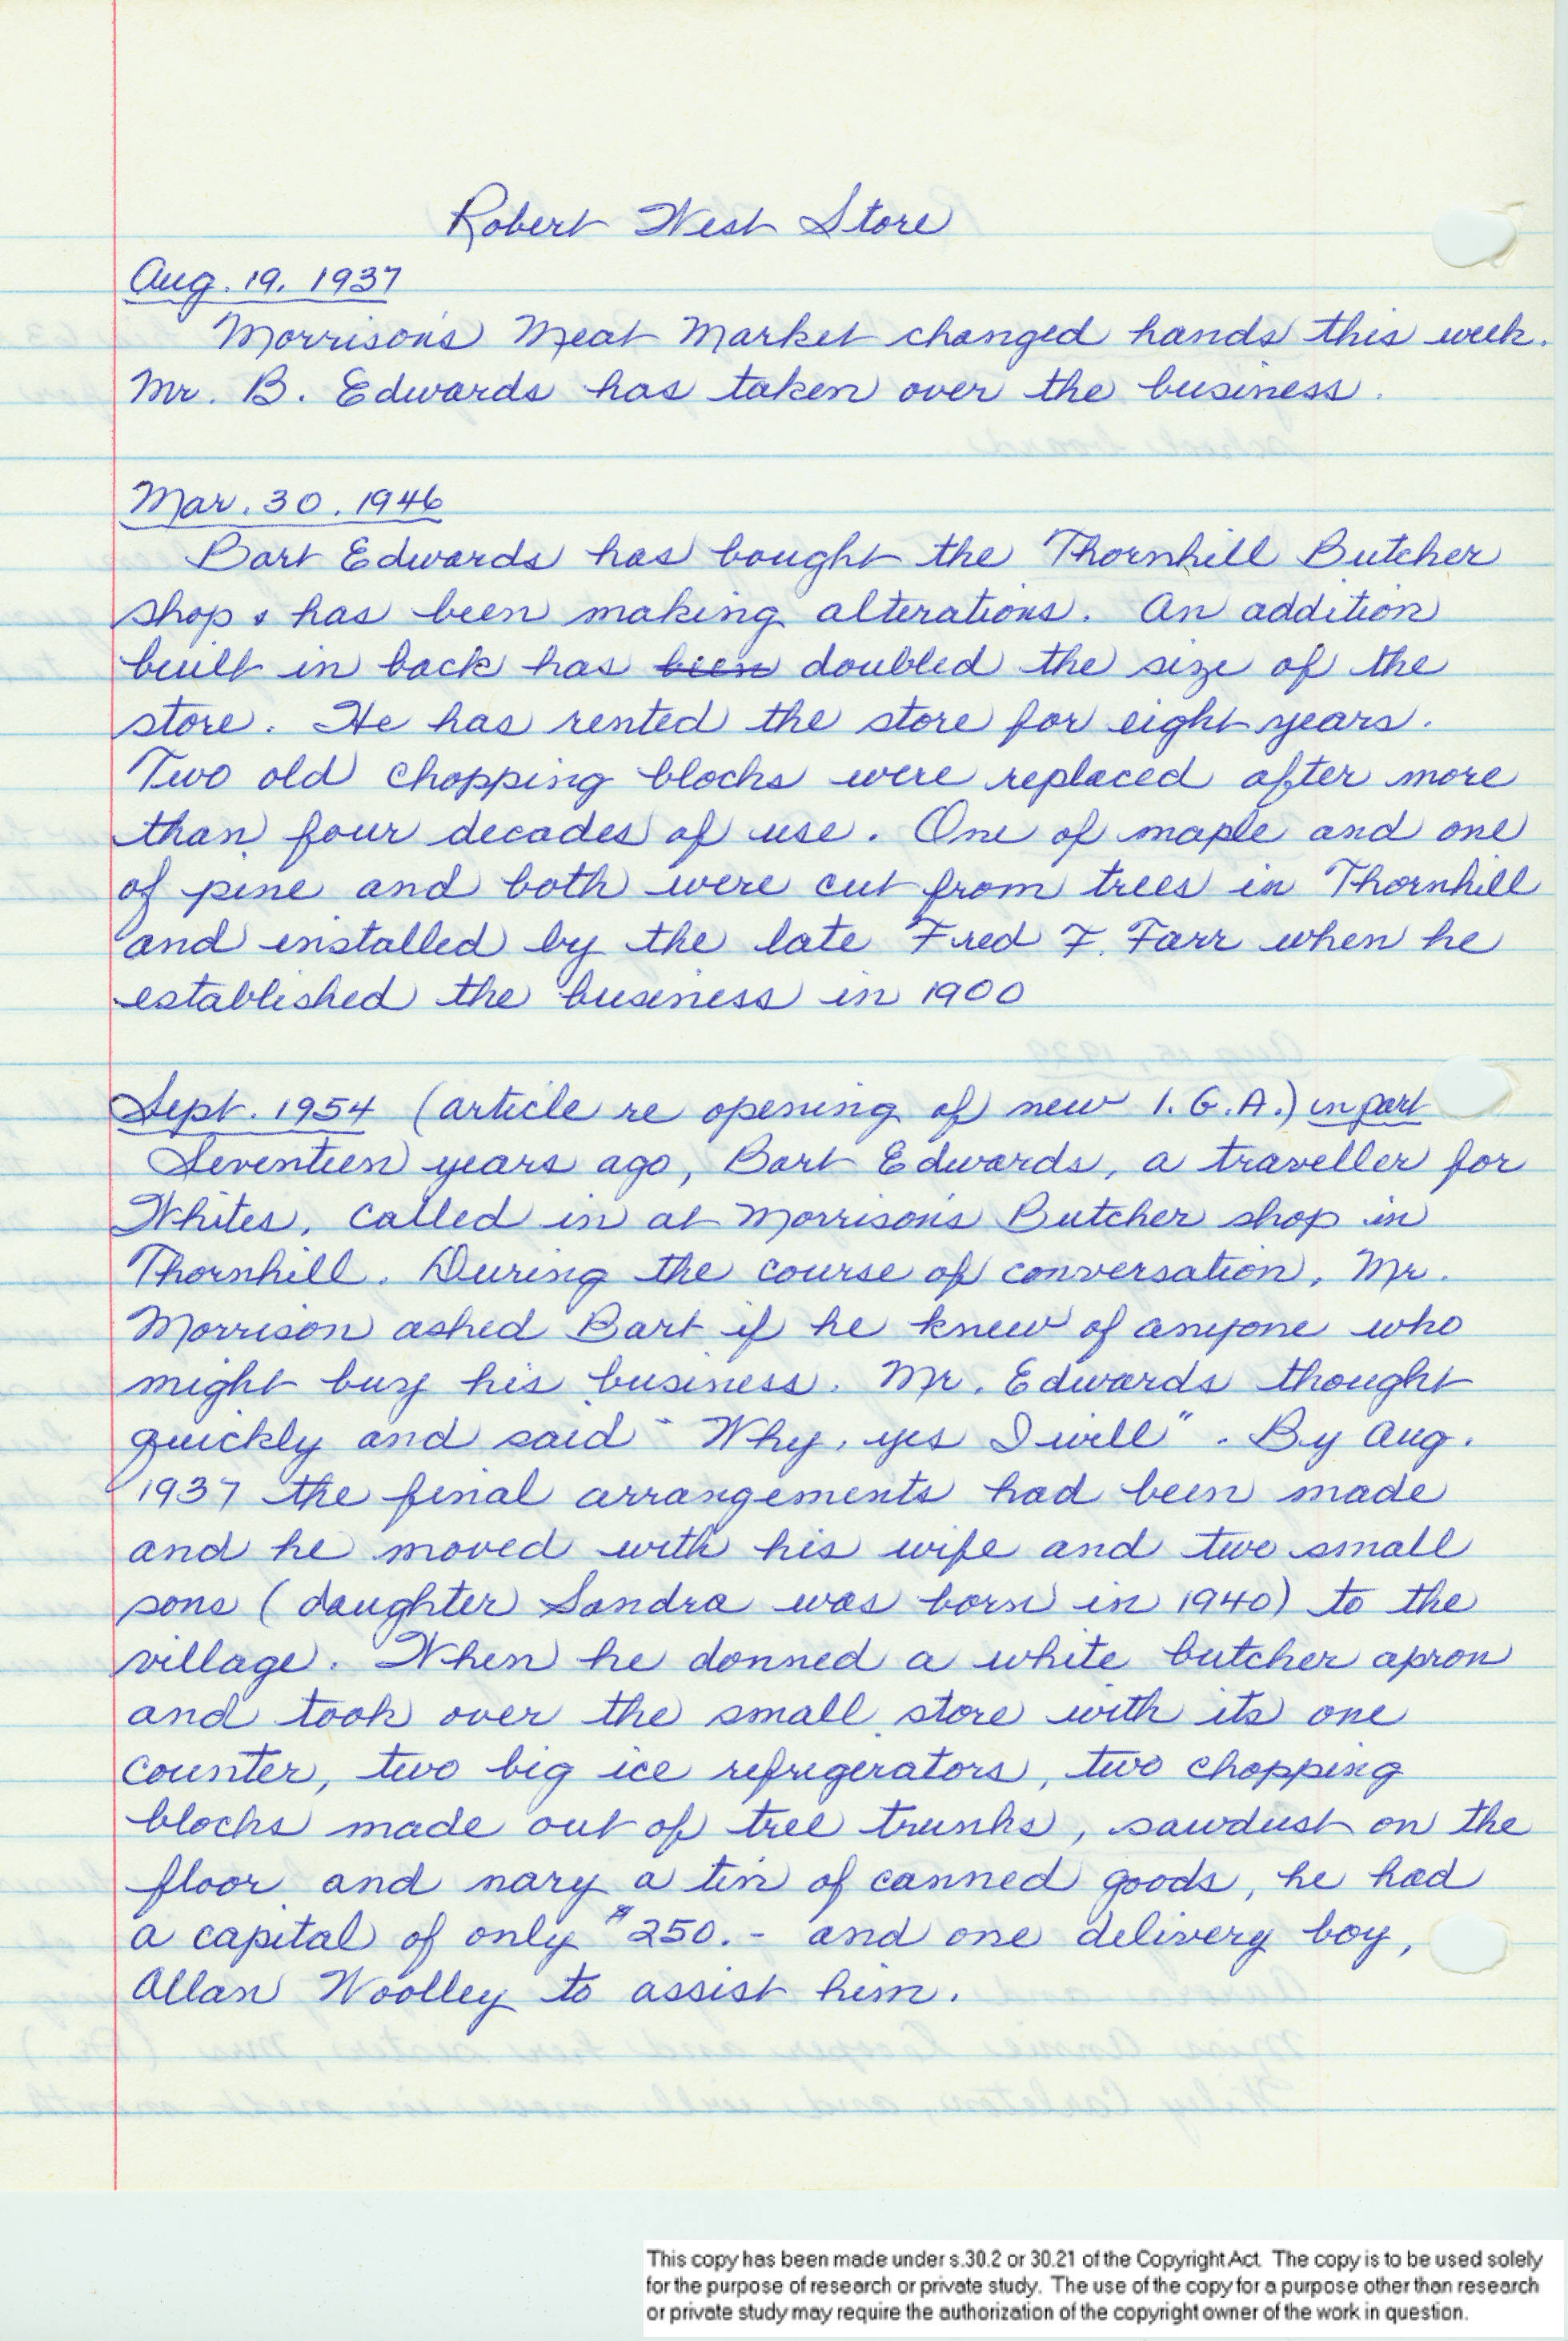 Robert West Store
Aug. 19. 1937
Morrison's Meat Market changed hands this week.
Mr. B. Edwards has taken over the business.
Mar. 30. 1946
Bart Edwards has bought the Thornhill Butcher
shop & has been making alterations. An addition
built in back has been doubled the size of the
store. He has rented the store for eight years.
Two old chopping blocks were replaced after more
than four decades of use. One of maple and one
of pine and both were cut from trees in Thornhill
and installed by the late Fred F. Farr when he
established the business in 1900
Sept. 1954 (article re opening of new I.G.A.) in part
Seventeen years ago, Bart Edwards, a traveller for
Whites, called in at Morrison's Butcher shop in
Thornhill. During the course of conversation, Mr.
Morrison asked Bart if he knew of anyone who
might buy his business. Mr. Edwards thought
quickly and said "Why, yes I will". By Aug.
1937 the final arrangements had been made
and he moved with his wife and two small
sons (daughter Sandra was born in 1940) to the
village. When he donned a white butcher apron
and took over the small store with its one
counter, two big ice refrigerators, two chopping
blocks made out of tree trunks, sawdust on the
floor and nary a tin of canned goods, he had
a capital of only $250.- and one delivery boy,
Allan Woolley to assist him.
This copy has been made under s.30.2 or 30.21 of the Copyright Act. The copy is to be used solely
for the purpose of research or private study. The use of the copy for a purpose other than research
or private study may require the authorization of the copyright owner of the work in question.